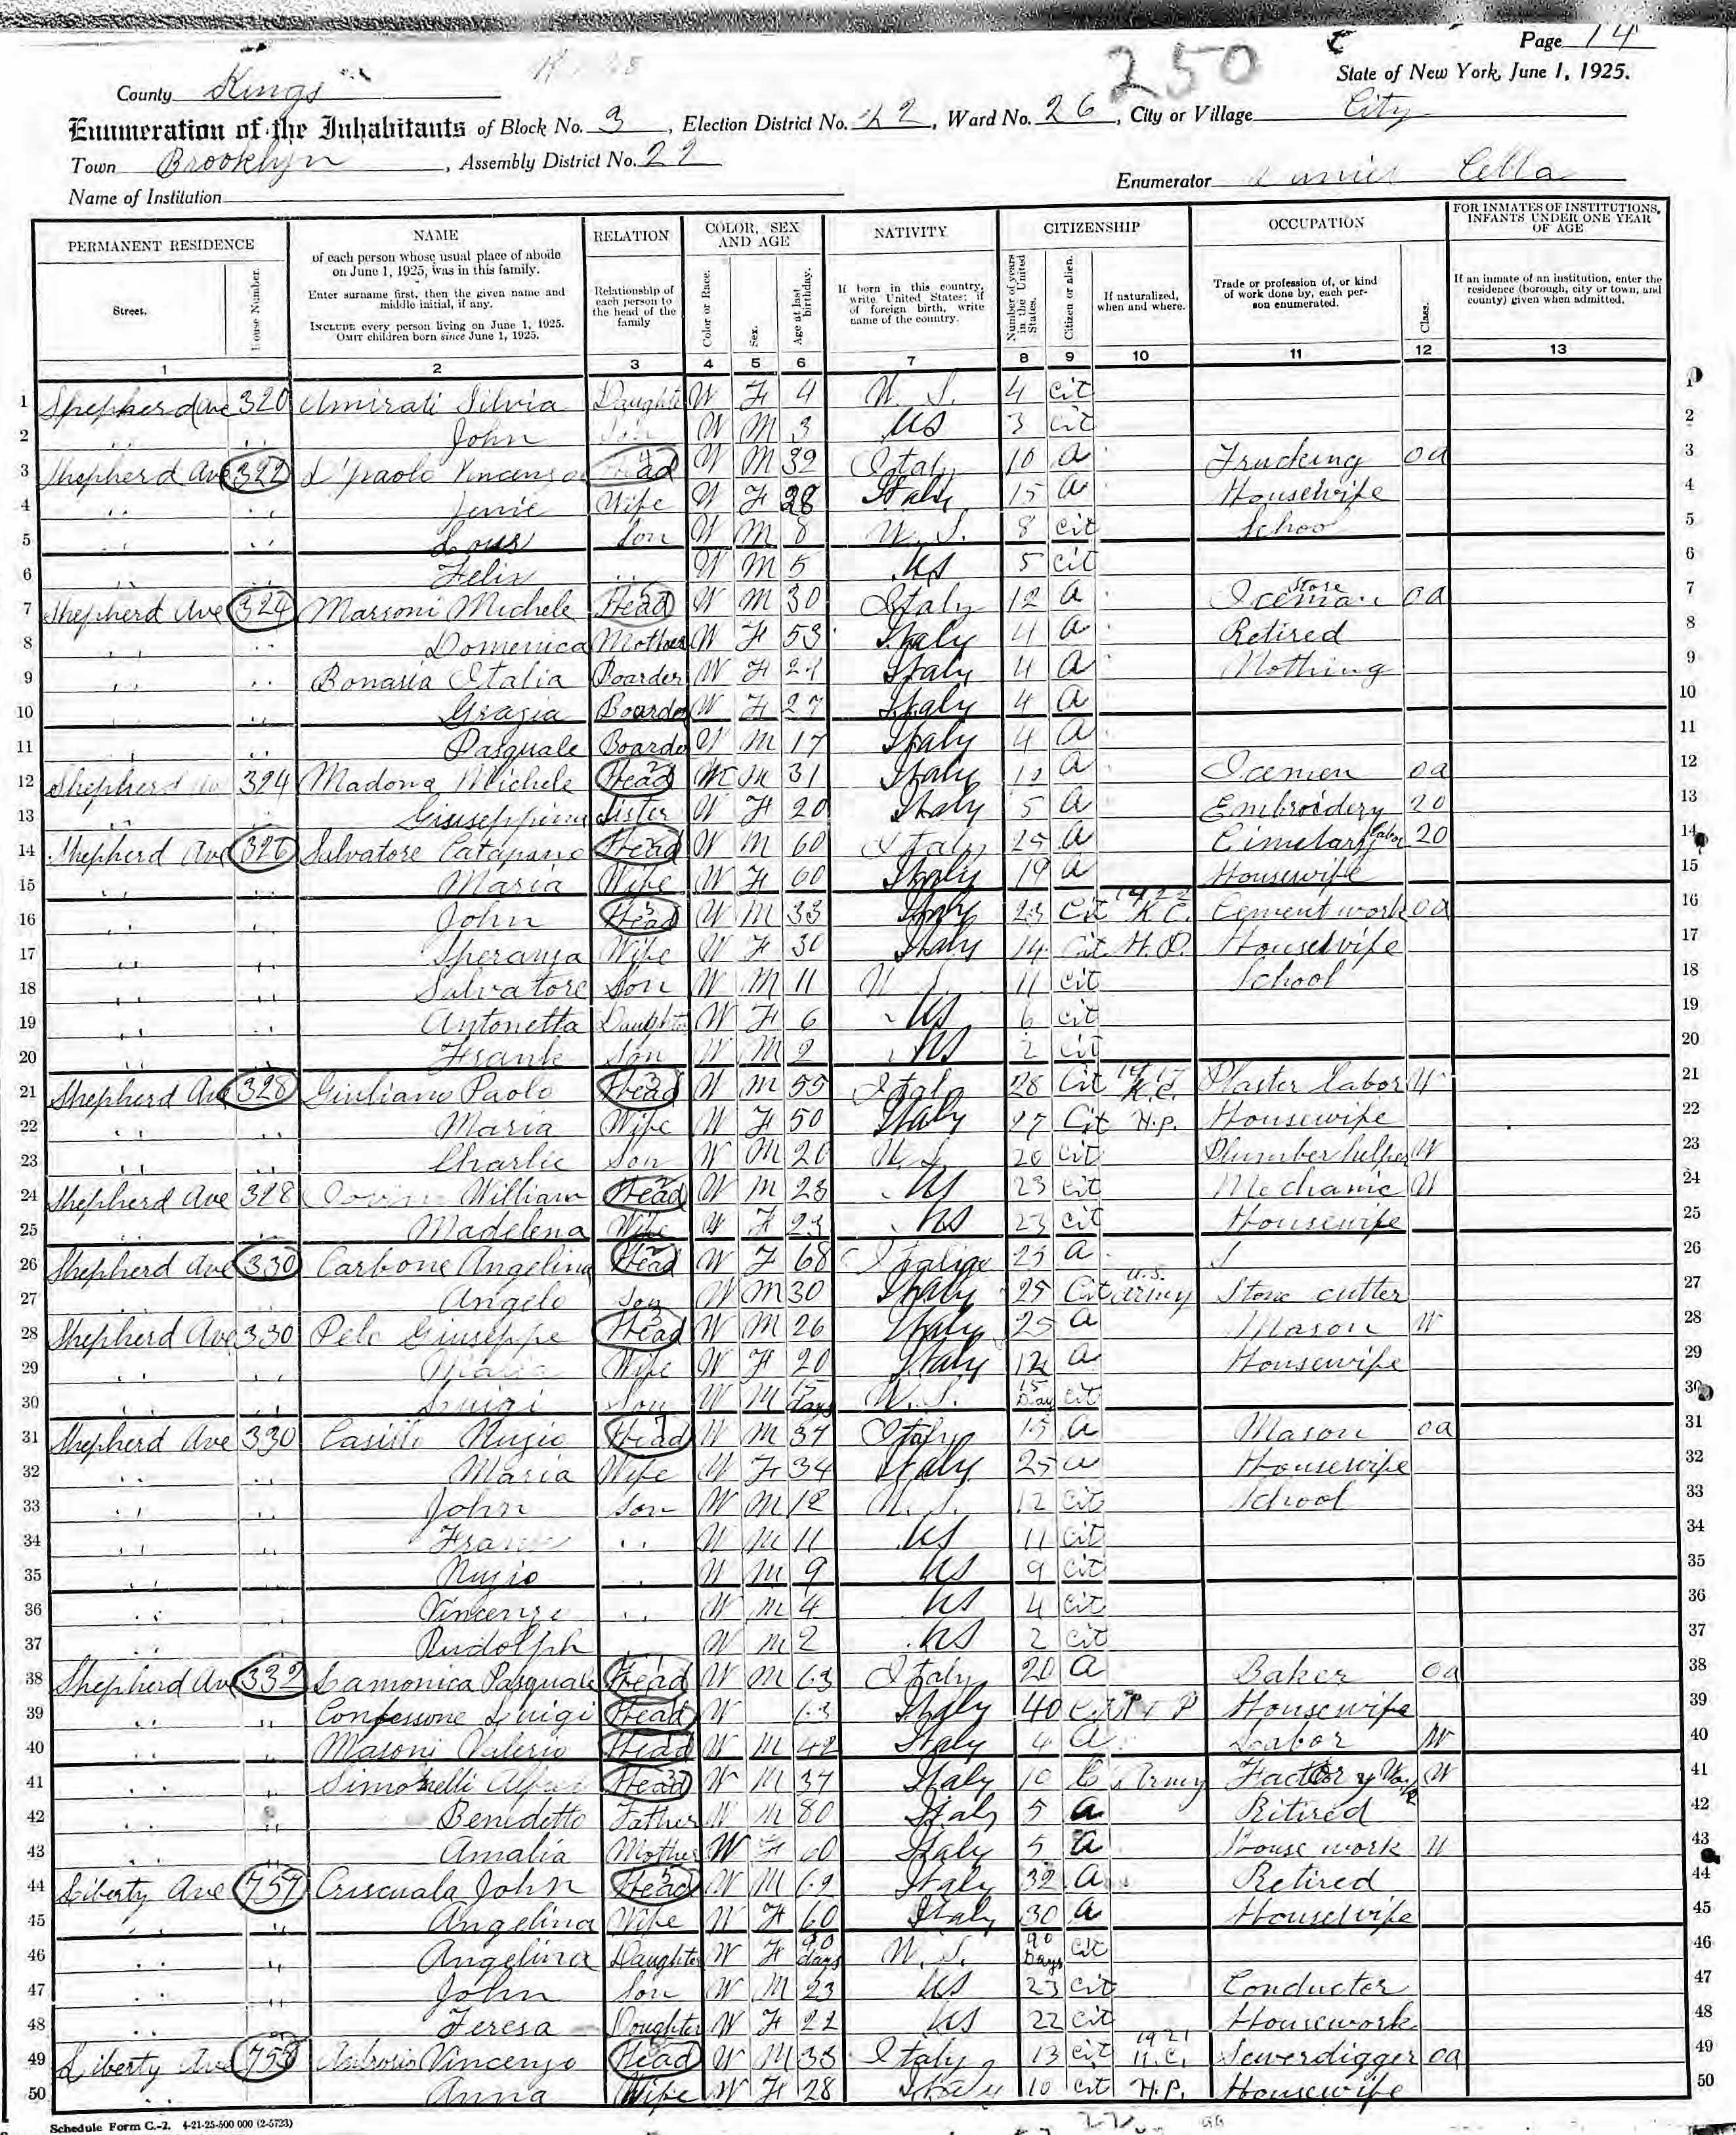 Page 14
250
State of New York, June 1, 1925.
County Kings
Enumeration of the Inhabitants of Block No. 3, Election District No. 22, Ward No. 26, City or Village City
Town Brooklyn, Assembly District No. 22
Name of Institution
Enumerator Cella
PERMANENT RESIDENCE
Street.
House Number.
NAME
of each person whose usual place of abode on June 1, 1925, was in this family.
Enter surname first, then the given name and middle initial, if any.
INCLUDE every person living on June 1, 1925. OMIT children born since June 1, 1925.
RELATION
Relationship of each person to the head of the family
COLOR, SEX AND AGE
Color or Race.
Sex.
Age at last birthday.
NATIVITY
If born in this country, write United States; if of foreign birth, write name of the country.
CITIZENSHIP
Number of years in the United States.
Citizen or alien.
If naturalized, when and where.
OCCUPATION
Trade or profession of, or kind of work done by, each person enumerated.
Class.
FOR INMATES OF INSTITUTIONS, INFANTS UNDER ONE YEAR OF AGE
If an inmate of an institution, enter the residence (borough, city or town, and county) given when admitted.
1 2 3 4 5 6 7 8 9 10 11 12 13
1 Shepherd Ave 320 Amirati Silvia Daughter W F 4 U.S. 4 cit 1
2 " " John Son W M 3 US 3 cit 2
3 Shepherd Ave 322 D'paolo Vincenzo Head W M 32 Italy 10 a Trucking oa 3
4 " " Jenie Wife W F 28 Italy 15 a Housewife 4
5 " " Louis Son W M 8 U.S. 8 cit School 5
6 " " Felix " W M 5 US 5 cit 6
7 Shepherd Ave 324 Massoni Michele Head W M 30 Italy 12 a Store Iceman oa 7
8 " " Domenica Mother W F 53 Italy 4 a Retired 8
9 " " Bonasia Italia Boarder W F 21 Italy 4 a Nothing 9
10 " " Grazia Boarder W F 27 Italy 4 a 10
11 " " Pasquale Boarder W M 17 Italy 4 a 11
12 Shepherd Av 324 Madona Michele Head W M 31 Italy 12 a Icemen oa 12
13 " " Giuseppina Sister W F 20 Italy 5 a Embroidery 20 13
14 Shepherd Ave 326 Salvatore Catapano Head W M 60 Italy 25 a Cimetary labor 20 14
15 " " Maria Wife W F 60 Italy 19 a Housewife 15
16 " " John Head W M 33 Italy 23 Cit 1922 K.C. Cement work oa 16
17 " " Speranza Wife W F 30 Italy 14 Cit H.P. Housewife 17
18 " " Salvatore Son W M 11 U.S. 11 cit School 18
19 " " Antonetta Daughter W F 6 US 6 cit 19
20 " " Frank Son W M 2 US 2 cit 20
21 Shepherd Ave 328 Giuliano Paolo Head W M 55 Italy 28 Cit K.C. Plaster labor W 21
22 " " Maria Wife W F 50 Italy 27 Cit H.P. Housewife 22
23 " " Charlie Son W M 20 U.S. 20 cit Plumber helper W 23
24 Shepherd Ave 328 William Head W M 23 US 23 cit Mechanic W 24
25 " " Madelena Wife W F 23 US 23 cit Housewife 25
26 Shepherd Ave 330 Carbone Angelina Head W F 68 25 a 26
27 " " Angelo Son W M 30 Italy 25 Cit U.S. army Stone cutter 27
28 Shepherd Ave 330 Pelo Giuseppe Head W M 26 Italy 25 a Mason W 28
29 " " Maria Wife W F 20 Italy 12 a Housewife 29
30 " " Luigi Son W M 15 days U.S. 15 Day cit 30
31 Shepherd Ave 330 Casillo Nuzio Head W M 37 Italy 15 a Mason oa 31
32 " " Maria Wife W F 34 Italy 25 a Housewife 32
33 " " John Son W M 12 U.S. 12 cit School 33
34 " " Frank " W M 11 US 11 cit 34
35 " " Nuzio " W M 9 US 9 cit 35
36 " " Vincenze " W M 4 US 4 cit 36
37 " Rudolph " W M 2 US 2 cit 37
38 Shepherd Ave 332 Lamonica Pasquale Head W M 63 Italy 20 a Baker oa 38
39 " " Confessone Luigi Head W 63 Italy 40 Housewife 39
40 " " Masoni Valerio Head W M 42 Italy 4 a Labor W 40
41 " " Simonelli Alfred Head W M 37 Italy 10 Army Factory W 41
42 " " Benedetto Father W M 80 Italy 5 a Ritired 42
43 " " Amalia Mother W F 60 Italy 5 a House work W 43
44 Liberty Ave 757 Criscuala John Head W M 62 Italy 32 a Retired 44
45 " " Angelina Wife W F 60 Italy 30 a Housewife 45
46 " " Angelina Daughter W F 90 days U.S. 90 Days cit 46
47 " " John Son W M 23 US 23 cit Conducter 47
48 " " Teresa Doughter W F 22 US 22 cit Housework 48
49 Liberty Ave 753 Ambrosio Vincenzo Head W M 33 Italy 13 cit 1921 K.C. Sewerdigger oa 49
50 " Anna Wife W F 28 Italy 10 cit H.P. Housewife 50
Schedule Form C.-2. 4-21-25-500 000 (2-5723)